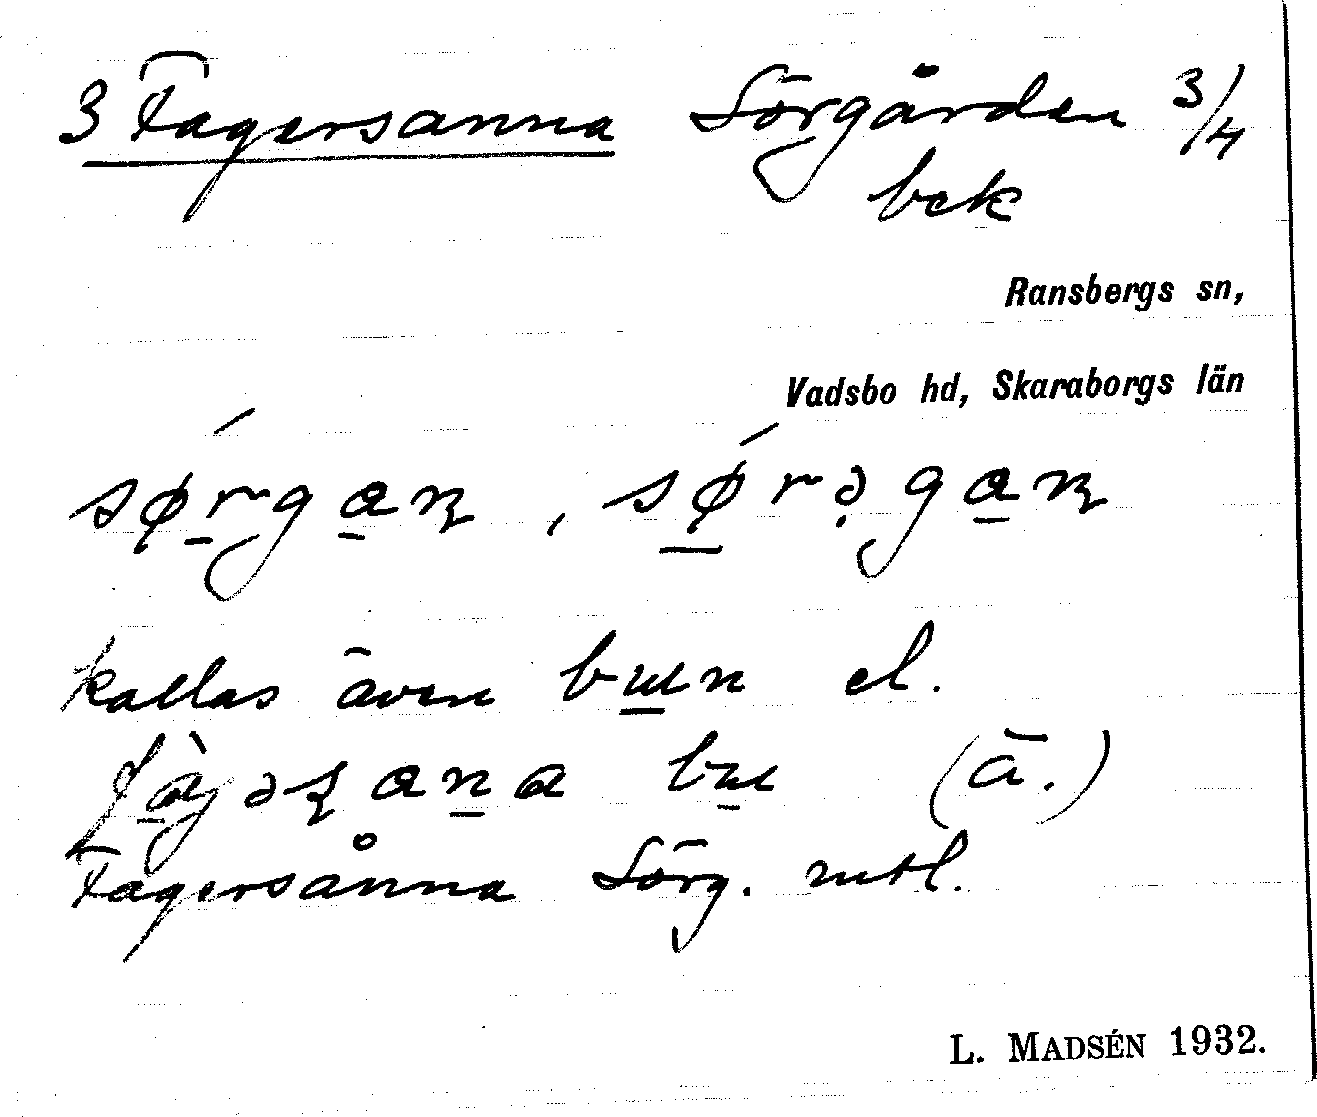 3 Fagersanna Sörgården 3/4
bek
Ransbergs sn,
Vadsbo hd, Skaraborgs län
sø̱rgan, sø̱rəgan
kallas även bɯn el.
fàgəʂana bɯ (ä.)
Fagersånna Sörg. mtl.
L. MADSÉN 1932.